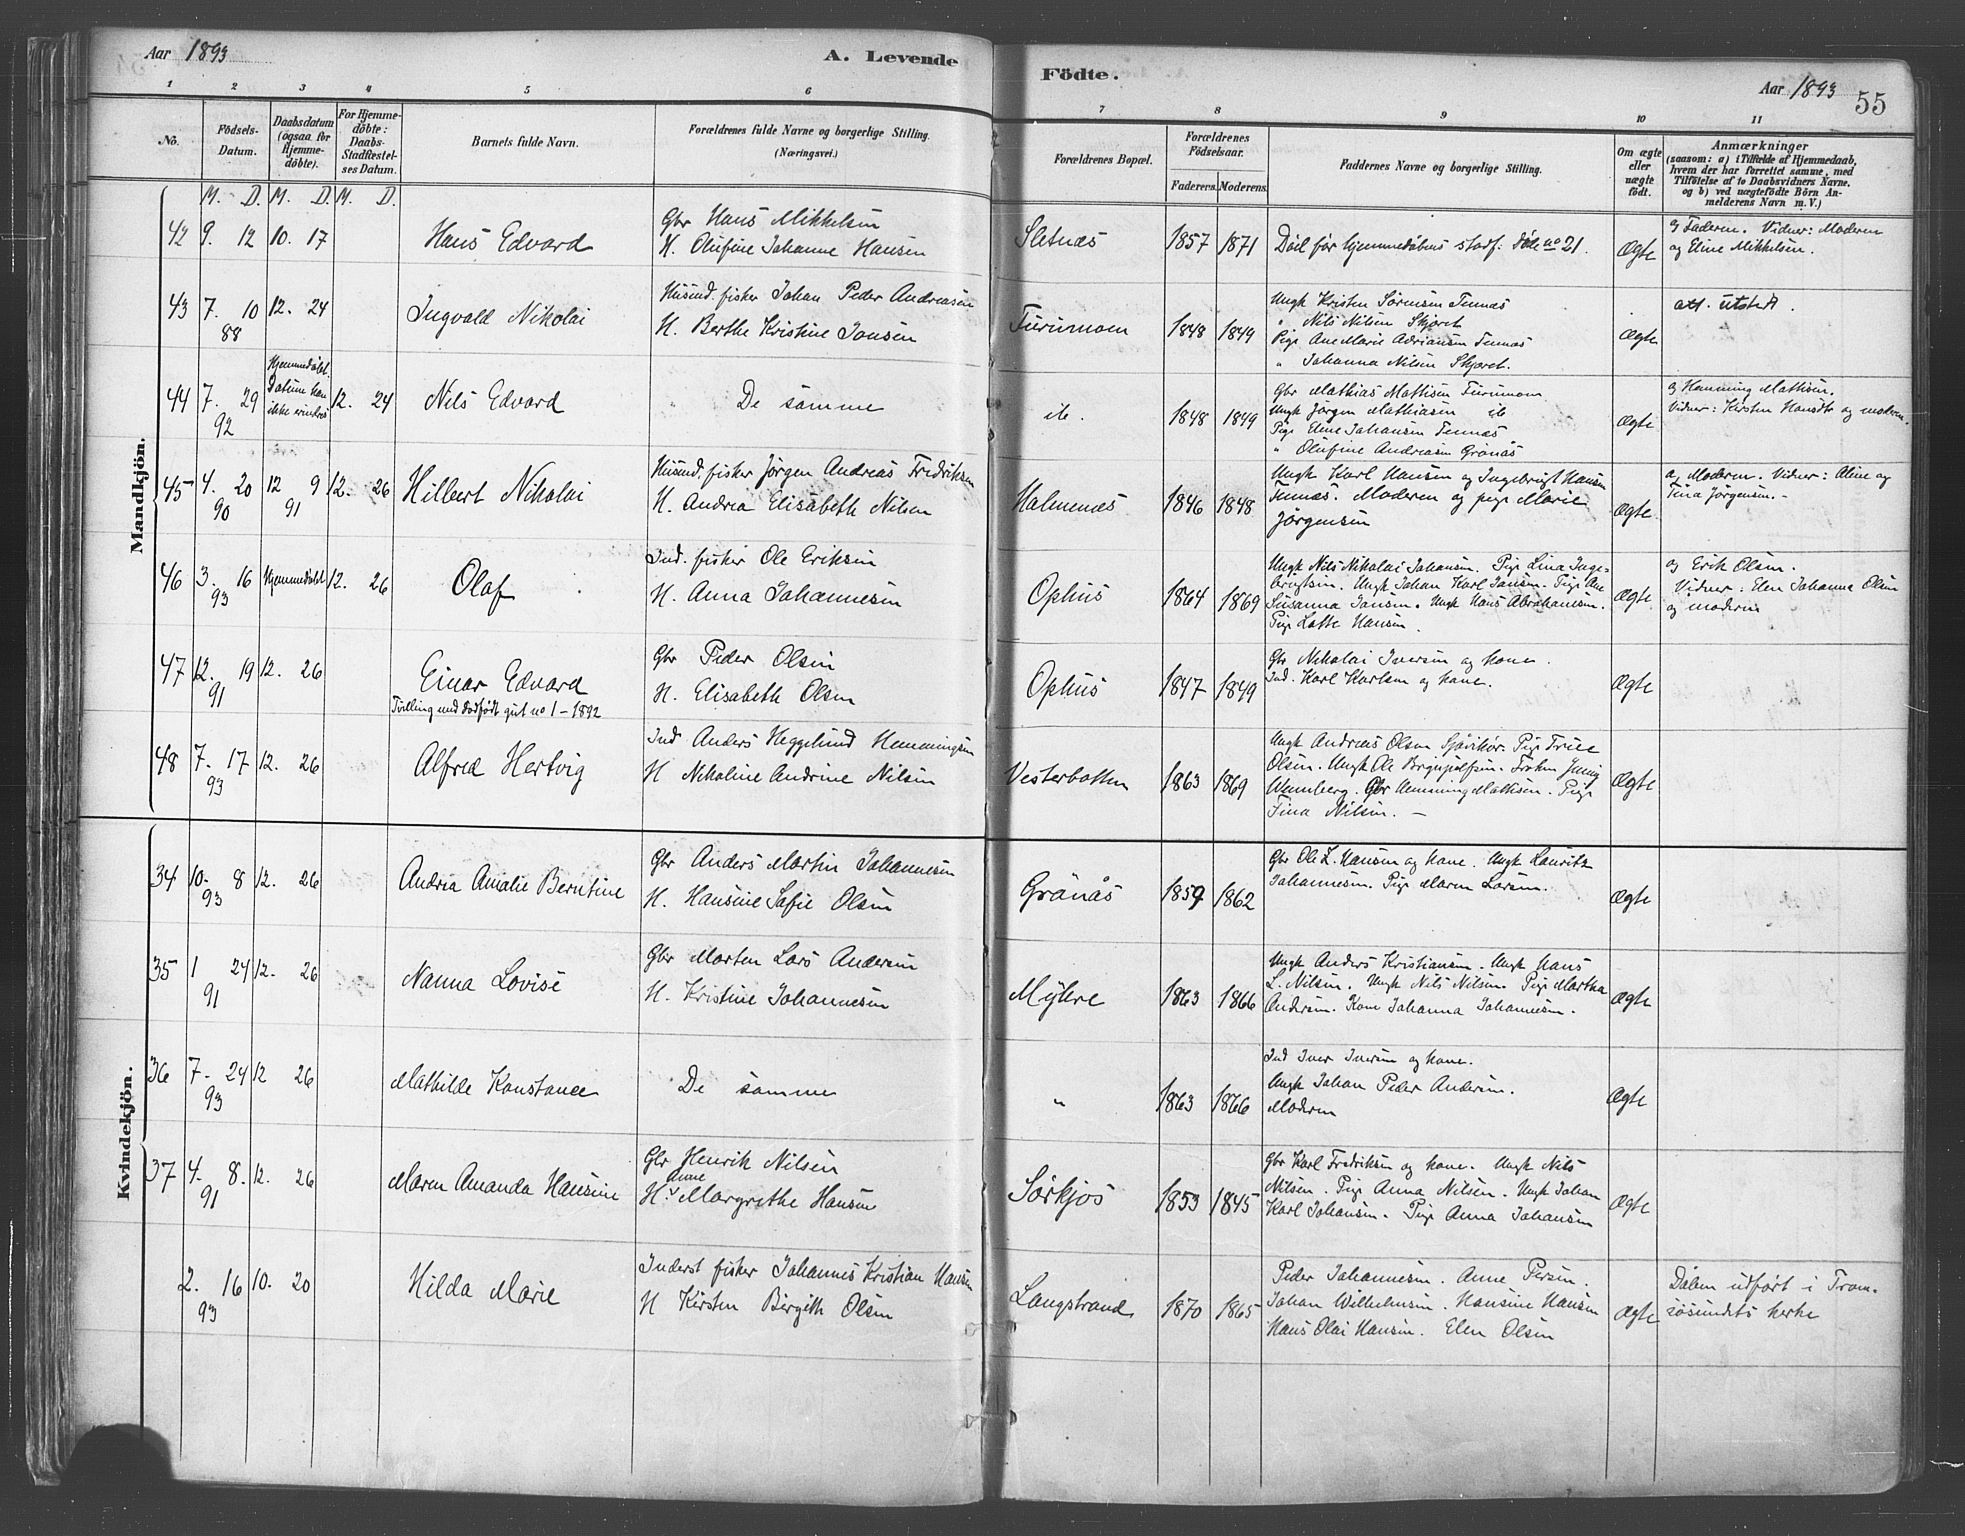 Aar 1893
A. Levende
Födte.
Aar 1893
55
1 2 3 4 5 6 7 8 9 10 11
No.
Födsels-
Datum.
Daabsdatum
(ogsaa for
Hjemme-
döbte).
For Hjemme-
döbte:
Daabs-
Stadfæstel-
ses Datum.
Barnets fulde Navn.
Forældrenes fulde Navne og borgerlige Stilling.
(Næringsvei.)
Forældrenes Bopæl.
Forældrenes
Födselsaar.
Faderens. Moderens.
Faddernes Navne og borgerlige Stilling.
Om ægte
eller
uægte
födt.
Anmærkninger
(saasom: a) i Tilfælde af Hjemmedaab,
hvem der har forrettet samme, med
Tilföielse af to Daabsvidners Navne,
og b) ved uægtefödte Börn An-
melderens Navn m. V.)
M. D. M. D. M. D.
Mandkjön.
42 9. 12 10. 17
Hans Edvard
Gbr Hans Mikkelsen
H. Olufine Johanne Hansen
Sletnæs
1857 1871
Döil för hjemmedöbns stadf. Döle no 21.
Ægte
Faderen. Vidner: Moderen
og Eline Mikkelsen.
43 7. 10 12. 24
88
Ingvald Nikolai
Husmd. fisker Johan Peder Andreasen
H. Berthe Kristine Jansen
Furumoen
1848 1849
Ungk Kristen Sörensen Tennæs
" Nils Nilsen Skjåret
Pige Ane Marie Adriansen Tennæs
" Johanna Nilsen Skjåret.
Ægte
att. utstedt.
44 7. 29
92
Hjemmedöbt.
Datum kan
ikke erindres
12. 24
Nils Edvard
De samme
ib.
1848 1849
Gbr Mathias Mattisen Furumoen
Ungk Jörgen Mathiasen ib
Pige Eline Johansen Tennæs
" Olufine Andreasen Grönås
Ægte
Henning Mattisen.
Vidner: Kirsten Hansdtr og moderen.
45 4. 20 12 9 12. 26
90 91
Hilbert Nikolai
Husmd. fisker Jörgen Andreas Fredriksen
H. Andrea Elisabeth Nilsen
Malmenæs
1846 1848
Ungk Karl Hansen og Ingebrigt Hansen
Tennæs. Moderen og pige Marie
Jörgensen
Ægte
Moderen. Vidner: Aline og
Tina Jörgensen. –
46 3. 16 Hjemmedöbt 12. 26
93
Olaf
Ind. fisker Ole Eriksen
H. Anna Johannesen
Ophus
1864 1869
Ungk Nils Nikolai Johansen. Pige Lina Inge-
brigtsen. Ungk Johan Karl Jansen. Pige Ane
Susanna Jansen. Ungk Hans Abrahamsen.
Pige Lotte Hansen.
Ægte
Erik Olsen.
Vidner: Elen Johanna Olsen
og moderen
47 12. 19 12. 26
91
Einar Edvard
Tvilling med dødfødt gut no 1 – 1892
Gbr Peder Olsen
H. Elisabeth Olsen
Ophus
1847 1849
Gbr Nikolai Iversen og kone.
Ind. Karl Karlsen og kone.
Ægte
48 7. 17 12. 26
93
Alfred Hertvig
Ind Anders Heggelund Hemmingsen
H Nikoline Andrine Nilsen
Vesterbotten
1863 1869
Ungk Andreas Olsen Sjövikör. Pige Trine
Olsen. Ungk Ole Bryngjulfsen. Fröken Jenny
Wennberg. Gbr Hemming Mattisen. Pige
Tina Nilsen. –
Ægte
Kvindekjön.
34 10. 8 12. 26
93
Andrea Amalie Berntine
Gbr Anders Martin Johannesen
H. Hansine Sofie Olsen
Grönås
1859 1862
Gbr Ole L. Hansen og kone. Ungk Lauritz
Johannesen. Pige Maren Larsen.
Ægte
35 1 24 12. 26
91
Nanna Lovise
Gbr Morten Lars Andersen
H. Kristine Johannesen
Myhre
1863 1866
Ungk Anders Kristiansen. Ungk Hans
L. Nilsen. Ungk Nils Nilsen. Pige Martha
Andersen. Kone Johanna Johannesen.
Ægte
36 7. 24 12 26
93
Mathilde Konstance
De samme
"
1863 1866
Ind Iver Iversen og kone.
Ungk Johan Peder Andersen.
Moderen
Ægte
37 4. 8. 12. 26
91
Maren Amanda Hansine
Gbr Henrik Nilsen
Anne
H. Margrethe Hansen
Sörkjos
1853 1845
Gbr Karl Fredriksen og kone. Ungk Nils
Nilsen. Pige Anna Nilsen. Ungk Johan
Karl Johansen. Pige Anna Johansen
Ægte
2. 16 10. 20
93
Hilda Marie
Inderst fisker Johannes Kristian Hansen
H Kirsten Birgith Olsen
Langstrand
1870 1865
Peder Johannesen. Anne Persen.
Johan Wilhelmsen. Hansine Hansen
Hans Olai Hansen. Elen Olsen
Ægte
Dåben udført i Trom-
søsundets kirke